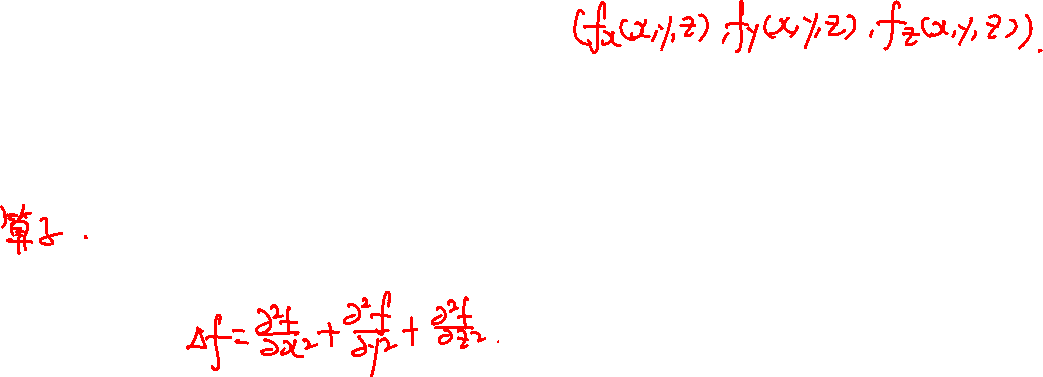 (fx(x,y,z), fy(x,y,z), fz(x,y,z)).
算子.
Δf = ∂²f/∂x² + ∂²f/∂y² + ∂²f/∂z².